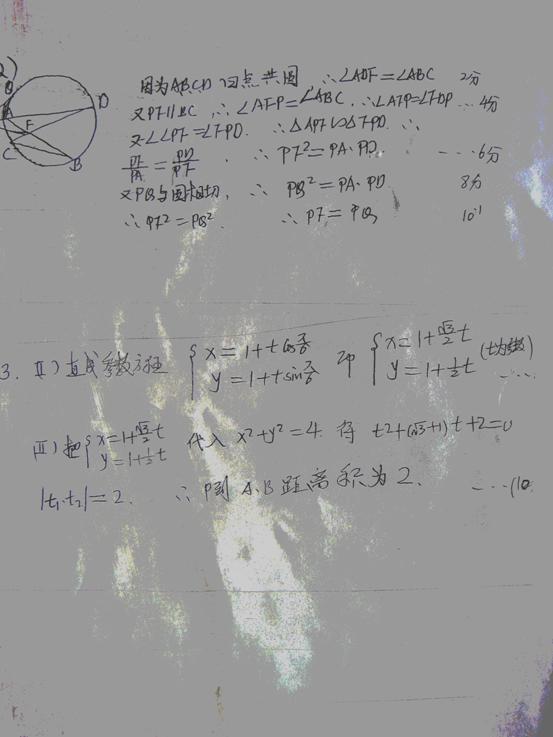 2)
Q A F C B D
因为ABCD四点共圆 ∴∠ADF=∠ABC 2分
又PF∥BC,∴∠AFP=∠ABC,∴∠AFP=∠FDP …4分
又∠APF=∠FPD. ∴△APF∽△FPD. ∴
PF/PA = PD/PF. ∴PF²=PA·PD. ……6分
又PQ与圆相切, ∴ PQ²=PA·PD 8分
∴PF²=PQ². ∴PF=PQ 10'
3. (I)直线参数方程 { x=1+tcosπ/6 y=1+tsinπ/6 即 { x=1+√3/2t y=1+1/2t (t为参数) ……
(II)把{ x=1+√3/2t y=1+1/2t 代入 x²+y²=4. 得 t2+(√3+1)t+2=0
|t₁·t₂|=2. ∴P到A、B距离积为2. ……(10